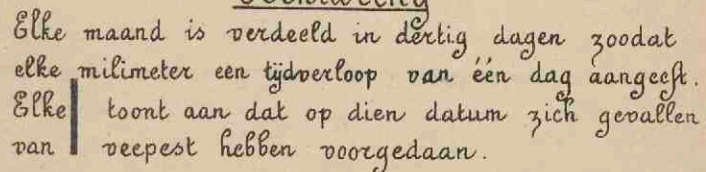 Elke maand is verdeeld in dertig dagen zoodat
elke milimeter een tijdverloop van één dag aangeeft.
Elke toont aan dat op dien datum zich gevallen
van veepest hebben voorgedaan.